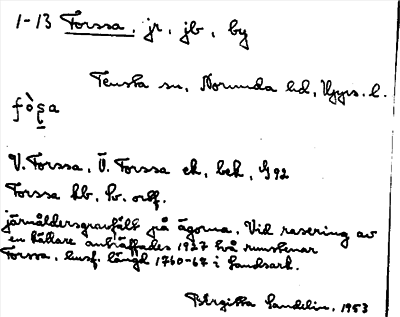 1-13 Forssa, jr, jb, by
Tensta sn, Norunda hd, Upps. l.
fòșa
V. Forssa, Ö. Forssa ek, bek, G 92
Forssa kb, hv. orff.
järnåldersgravfält på ägorna. Vid rasering av
en källare anträffades 1927 två runstenar
Forssa, husf. längd 1760-67 i Landsark.
Birgitta Sandelin, 1953